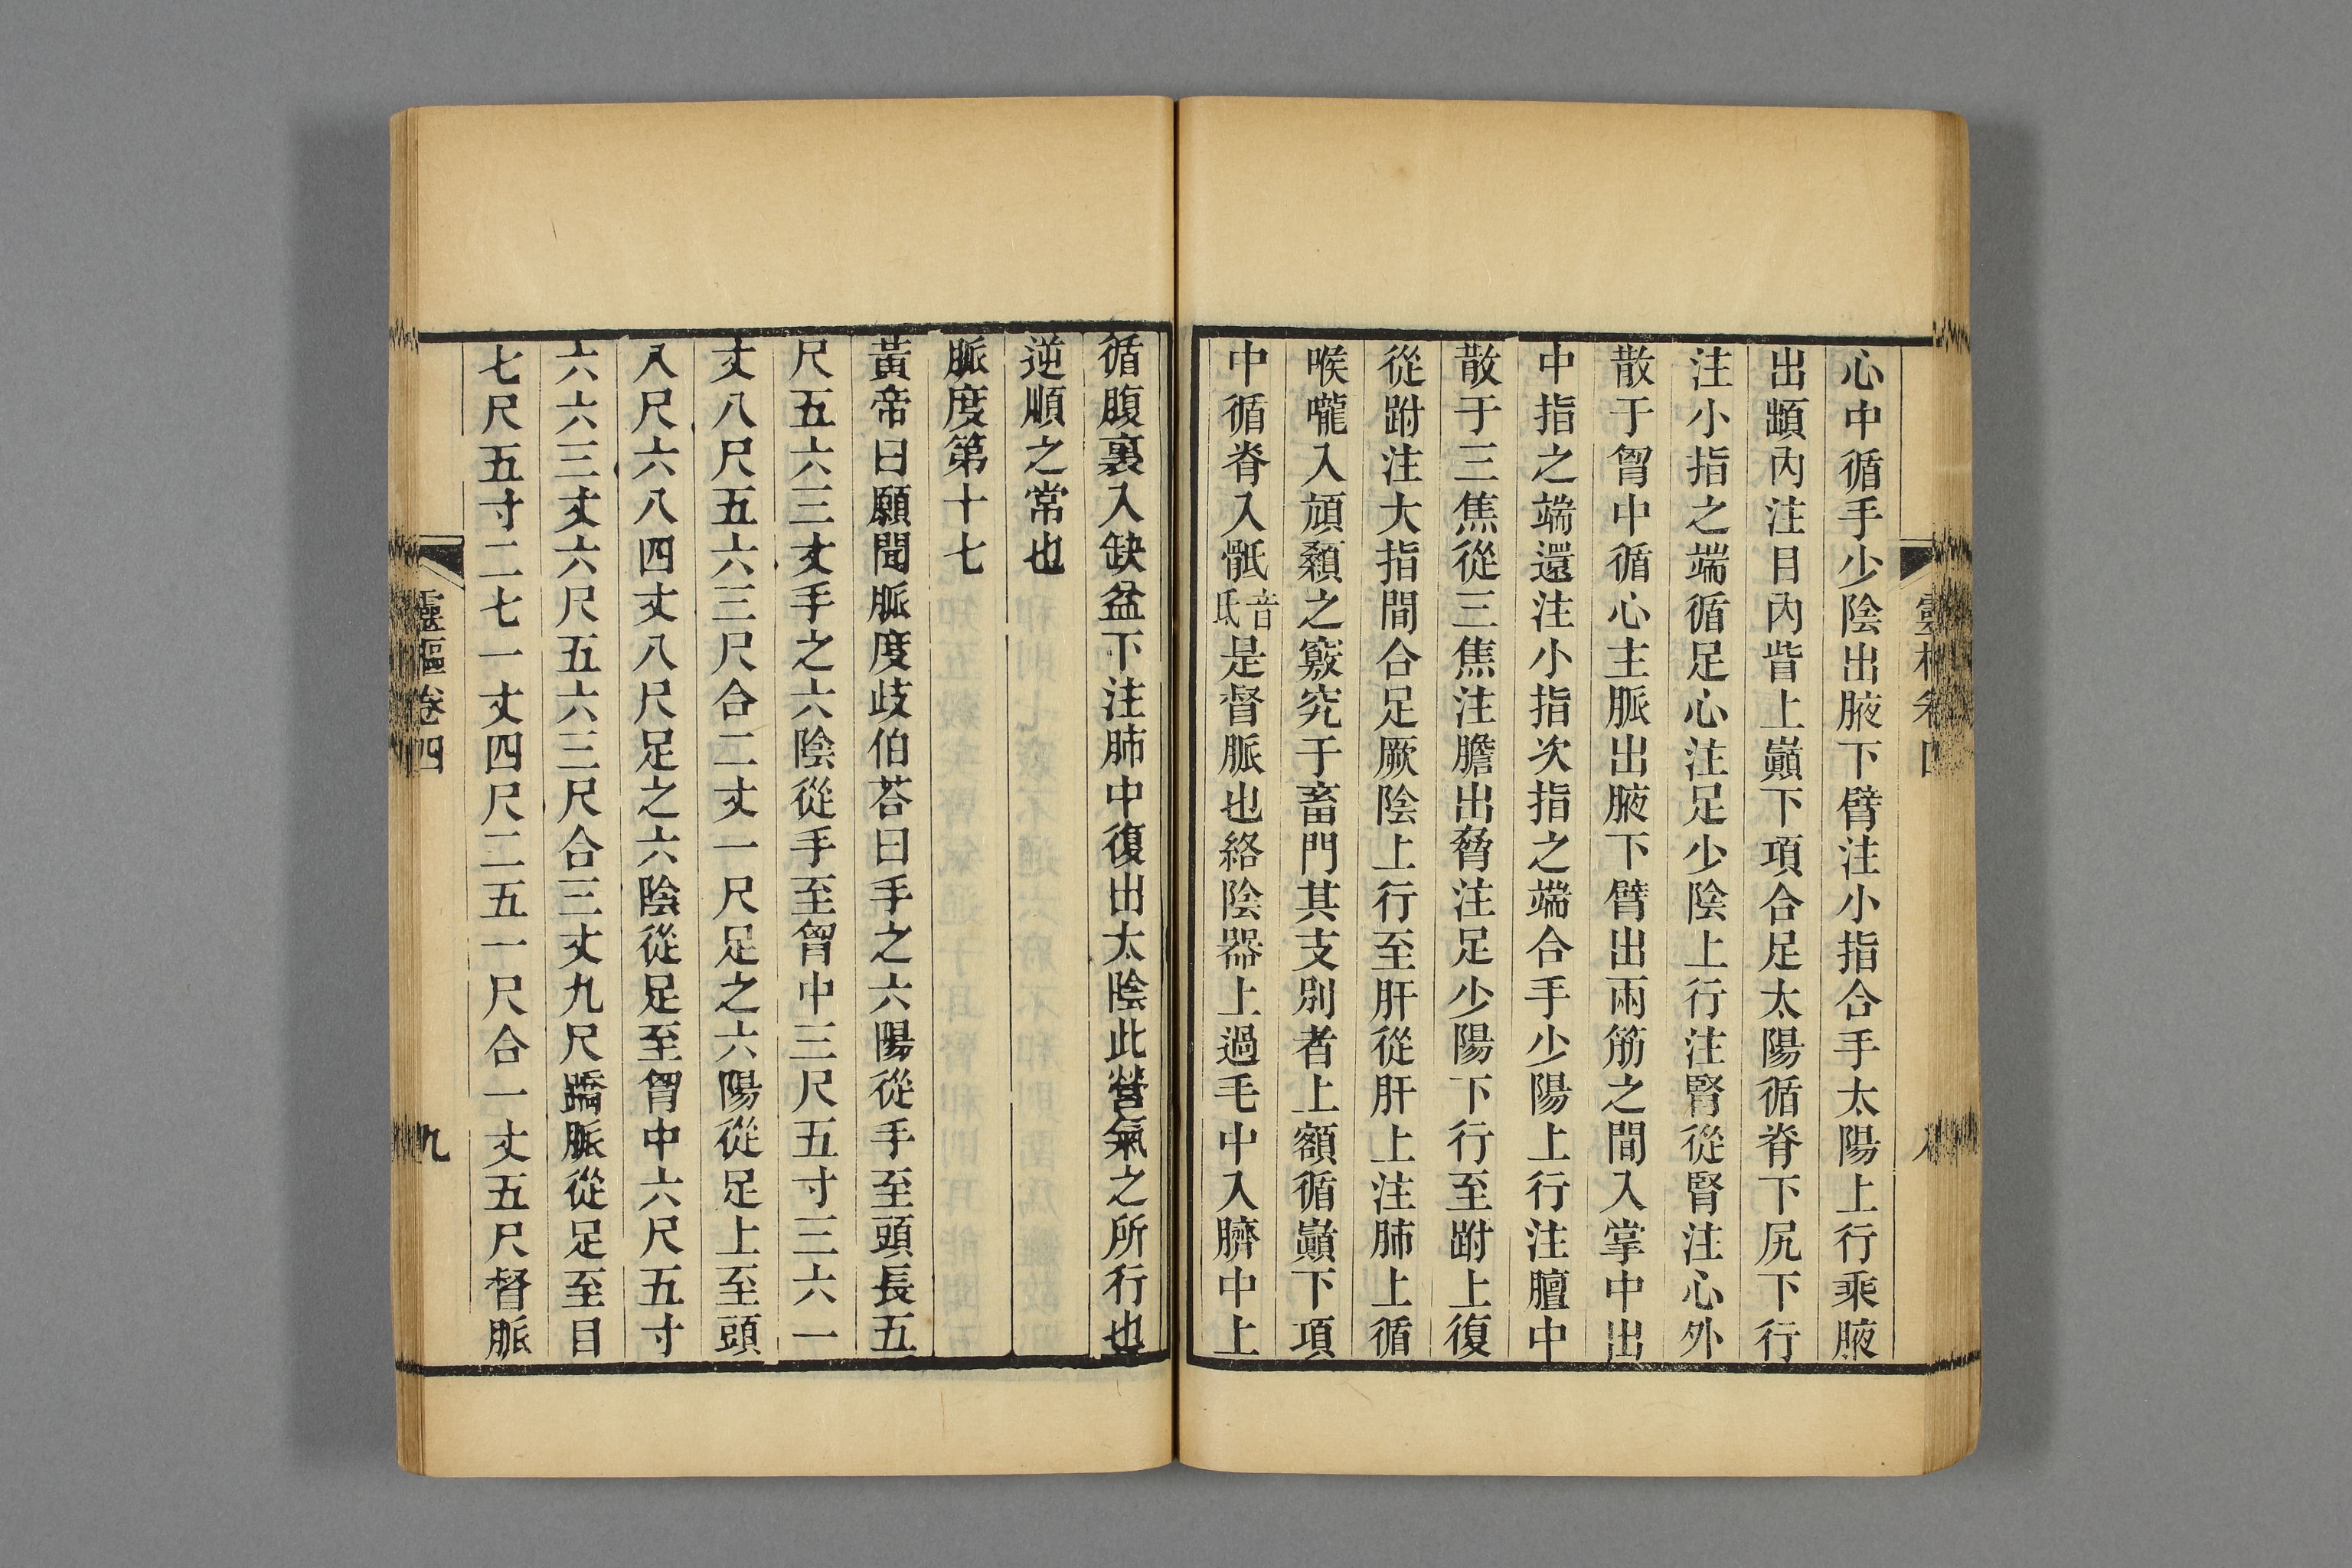 心中循手少陰出腋下臂注小指合手太陽上行乘腋
出䪼內注目內眥上巔下項合足太陽循脊下尻下行
注小指之端循足心注足少陰上行注腎從腎注心外
散于胷中循心主脈出腋下臂出兩筋之間入掌中出
中指之端還注小指次指之端合手少陽上行注膻中
散于三焦從三焦注膽出脅注足少陽下行至跗上復
從跗注大指間合足厥陰上行至肝從肝上注肺上循
喉嚨入頏顙之竅究于畜門其支別者上額循巔下項
中循脊入骶音氐是督脈也絡陰器上過毛中入臍中上
循腹裏入缺盆下注肺中復出太陰此營氣之所行也
逆順之常也
脈度第十七
黃帝曰願聞脈度歧伯荅曰手之六陽從手至頭長五
尺五六三丈手之六陰從手至胷中三尺五寸三六一
丈八尺五六三尺合二丈一尺足之六陽從足上至頭
八尺六八四丈八尺足之六陰從足至胷中六尺五寸
六六三丈六尺五六三尺合三丈九尺蹻脈從足至目
七尺五寸二七一丈四尺二五一尺合一丈五尺督脈
靈樞卷四
九